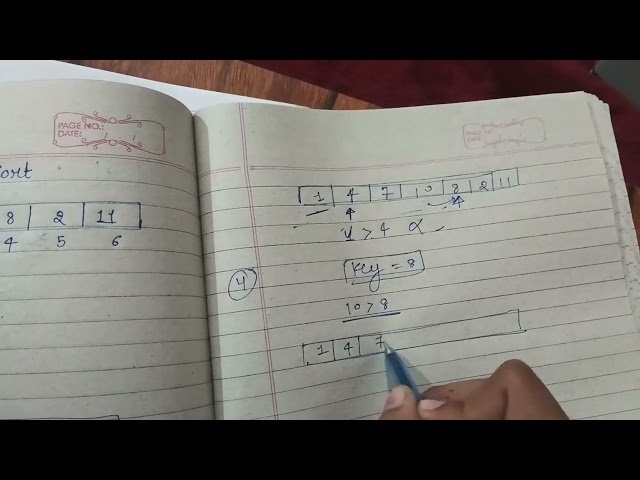 PAGE NO.:
DATE:
8 2 11
4 5 6
1 4 7 10 8 2 11
1 > 4
4
Key = 8
10 > 8
1 4 7